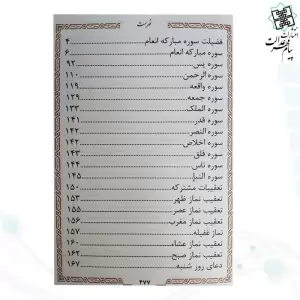 انتشارات
پیام عدالت
فهرست
فضیلت سوره مبارکه انعام ۴
سوره مبارکه انعام ۶
سوره یس ۹۲
سوره الرحمن ۱۱۰
سوره واقعه ۱۱۹
سوره جمعه ۱۲۹
سوره الملک ۱۳۳
سوره قدر ۱۴۱
سوره النصر ۱۴۲
سوره اخلاص ۱۴۲
سوره فلق ۱۴۳
سوره ناس ۱۴۴
سوره النبإ ۱۴۵
تعقیبات مشترکه ۱۵۰
تعقیب نماز ظهر ۱۵۳
تعقیب نماز عصر ۱۵۵
تعقیب نماز مغرب ۱۵۶
نماز غفیله ۱۵۷
تعقیب نماز عشاء ۱۶۰
تعقیب نماز صبح ۱۶۲
دعای روز شنبه ۱۶۷
۴۷۷